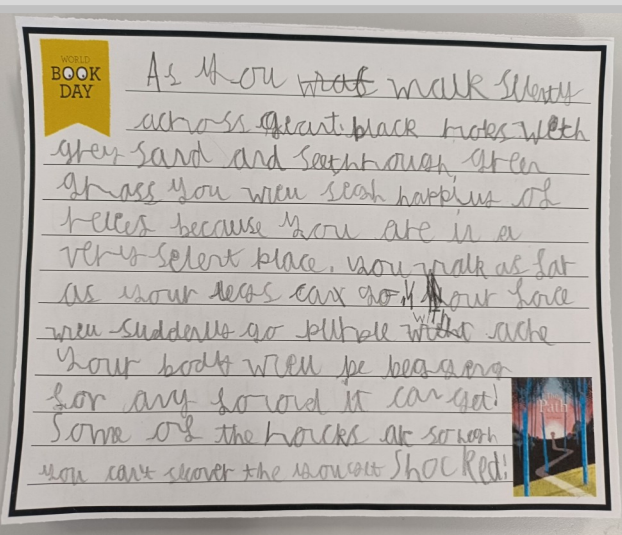 WORLD
BOOK
DAY
As you walk silently
across giant black rocks with
grey sand and seethrough green
grass you will seah happius of
because you are in a
very selent place. you walk as far
as your legs can go. Your face
will suddenly go purple with ache
Your body will be begging
for any food it can get!
Some of the rocks ar so
you can't the Shocked!
Path